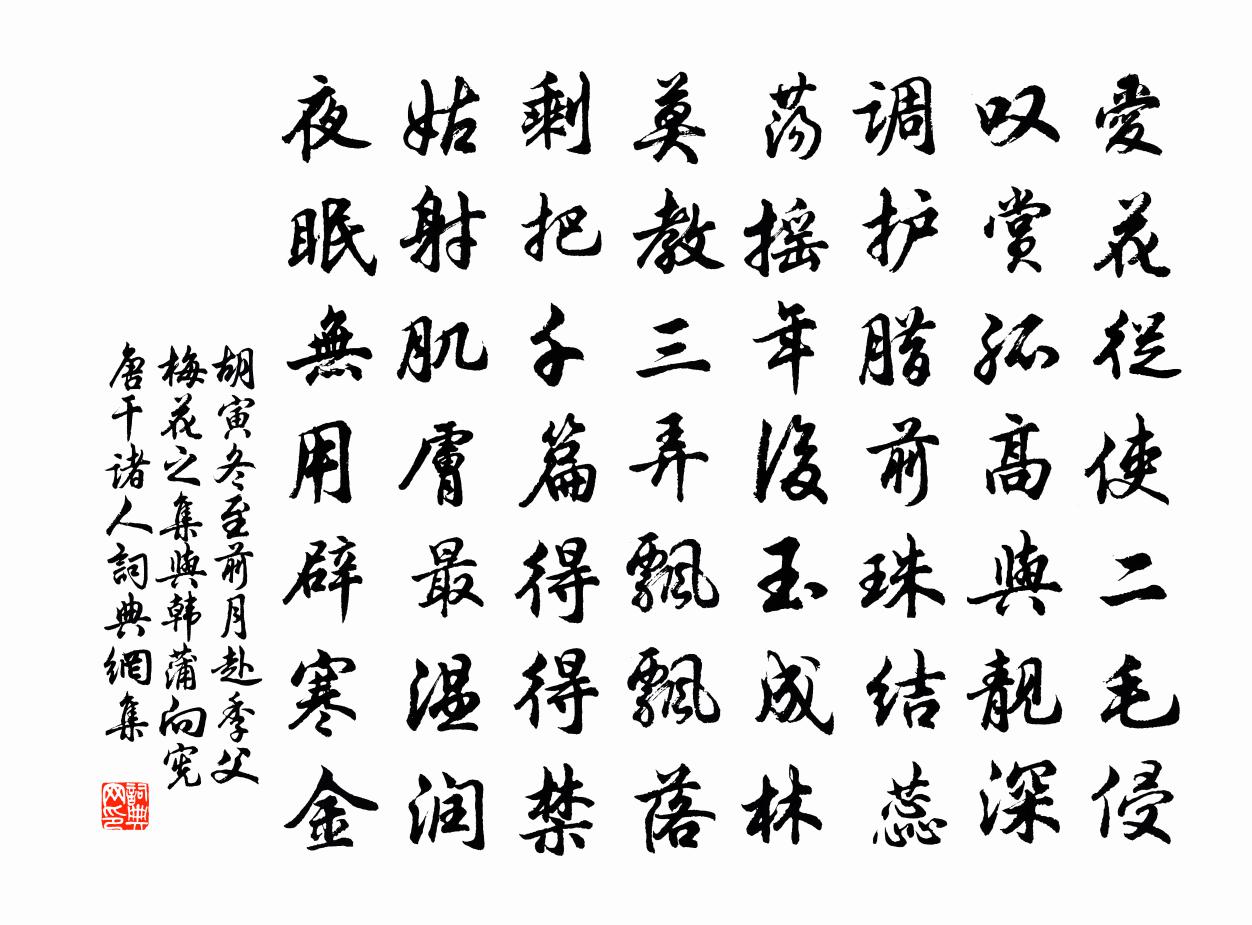 愛花從使二毛侵
叹赏孤高與靓深
调护腊前珠结蕊
荡摇年後玉成林
莫教三弄飘飘落
剩把千篇得得禁
姑射肌膚最温润
夜眠無用辟寒金
胡寅冬至前月赴季父
梅花之集與韩蒲向宪
唐干诸人詞典網集
詞典网印